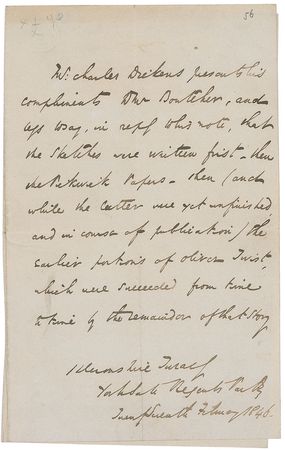 56
Mr. Charles Dickens presents his
compliments to Mr Boutcher, and
begs to say, in reply to his note, that
the Sketches were written first - then
the Pickwick Papers - then (and
while the latter were yet unfinished
and in course of publication) the
earlier portions of Oliver Twist,
which were succeeded from time
to time by the remainder of that story
1 Devonshire Terrace
York Gate Regents Park
Twenty Seventh February 1840.